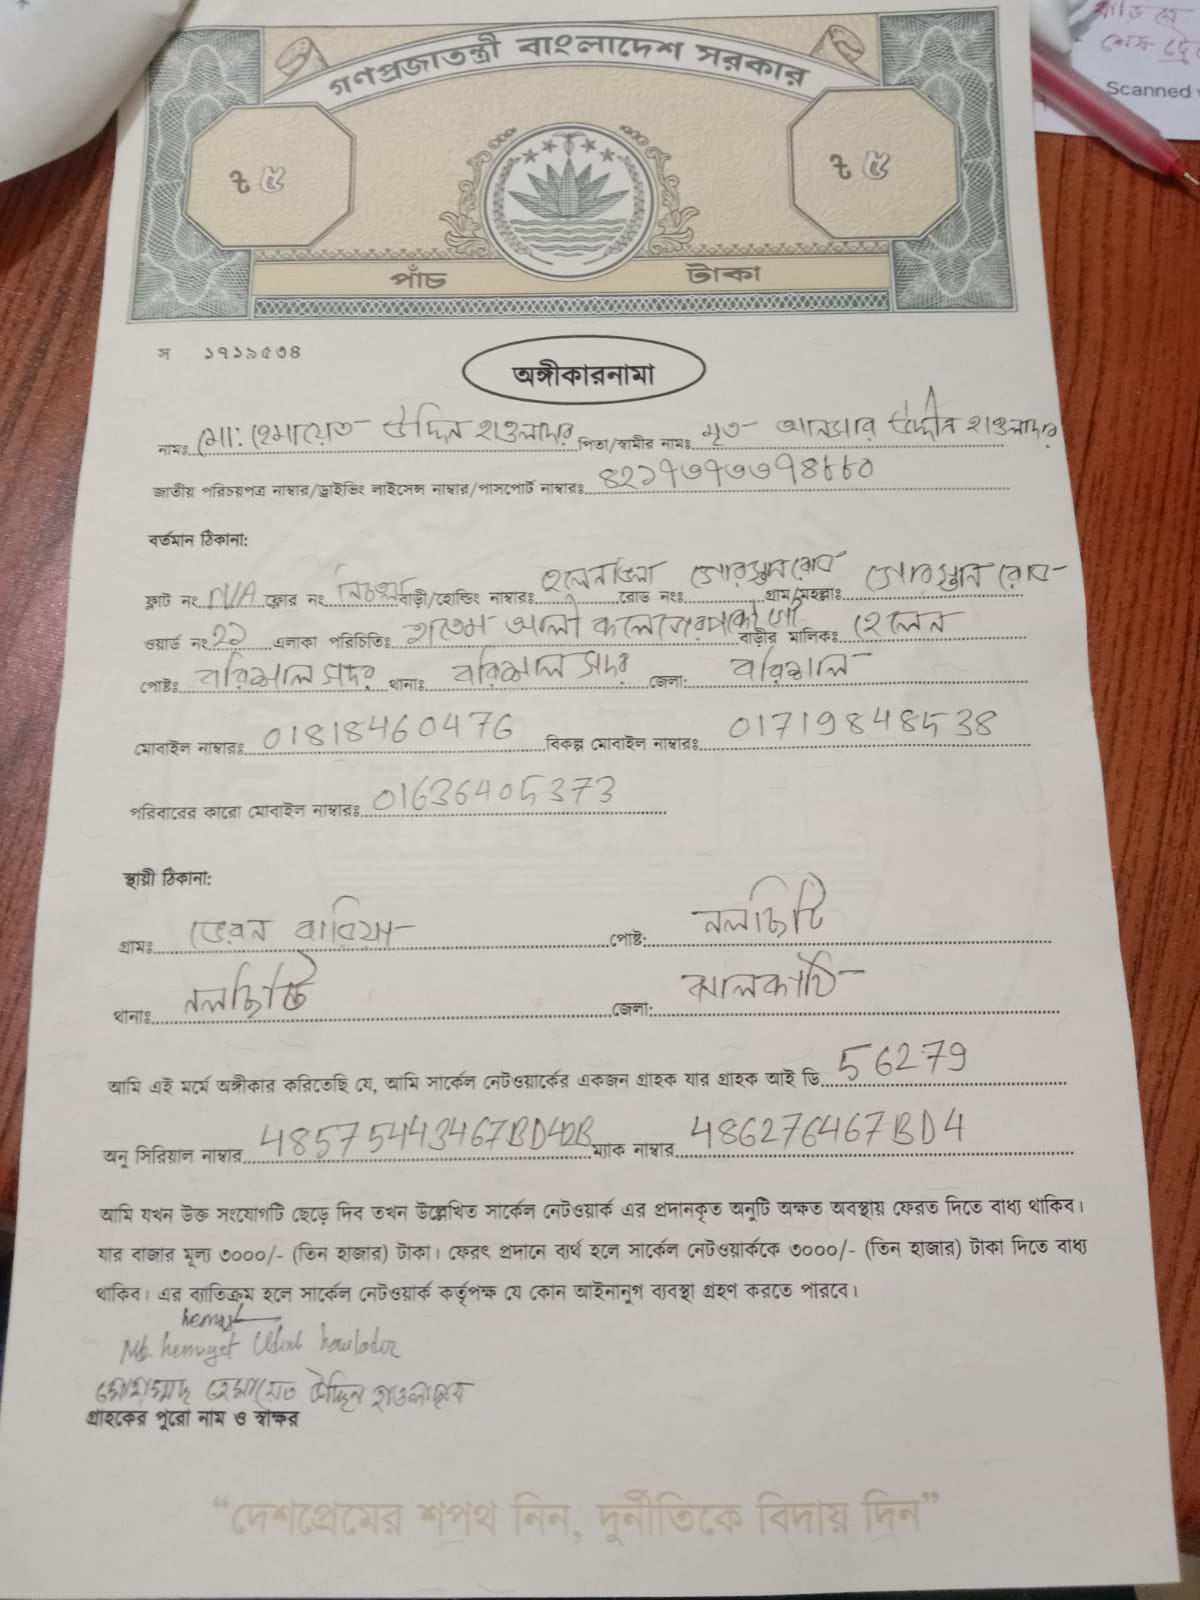 গণপ্রজাতন্ত্রী বাংলাদেশ সরকার
৳ ৫ ৳ ৫
পাঁচ টাকা
স ১৭১৯৫৩৪
অঙ্গীকারনামা
নামঃ মো: হেমায়েত উদ্দিন হাওলাদার পিতা/স্বামীর নামঃ মৃত আনসার উদ্দীন হাওলাদার
জাতীয় পরিচয়পত্র নাম্বার/ড্রাইভিং লাইসেন্স নাম্বার/পাসপোর্ট নাম্বারঃ
বর্তমান ঠিকানা:
ফ্লাট নং N/A ফ্লোর নং বাড়ী/হোল্ডিং নাম্বারঃ হেলেন ভিলা রোড নংঃ গোরস্থান রোড গ্রাম/মহল্লাঃ গোরস্থান রোড
ওয়ার্ড নং এলাকা পরিচিতিঃ হাতেম আলী কলেজের বাড়ীর মালিকঃ হেলেন
পোষ্টঃ বরিশাল সদর থানাঃ বরিশাল সদর জেলা: বরিশাল
মোবাইল নাম্বারঃ 01818460476 বিকল্প মোবাইল নাম্বারঃ 01719848538
পরিবারের কারো মোবাইল নাম্বারঃ 01636405373
স্থায়ী ঠিকানা:
গ্রামঃ পোষ্ট: নলছিটি
থানাঃ নলছিটি জেলা: ঝালকাঠি
আমি এই মর্মে অঙ্গীকার করিতেছি যে, আমি সার্কেল নেটওয়ার্কের একজন গ্রাহক যার গ্রাহক আই ডি 56279
অনু সিরিয়াল নাম্বার 48575443467BD42B ম্যাক নাম্বার 486276467BD4
আমি যখন উক্ত সংযোগটি ছেড়ে দিব তখন উল্লেখিত সার্কেল নেটওয়ার্ক এর প্রদানকৃত অনুটি অক্ষত অবস্থায় ফেরত দিতে বাধ্য থাকিব।
যার বাজার মূল্য ৩০০০/- (তিন হাজার) টাকা। ফেরৎ প্রদানে ব্যর্থ হলে সার্কেল নেটওয়ার্ককে ৩০০০/- (তিন হাজার) টাকা দিতে বাধ্য
থাকিব। এর ব্যতিক্রম হলে সার্কেল নেটওয়ার্ক কর্তৃপক্ষ যে কোন আইনানুগ ব্যবস্থা গ্রহণ করতে পারবে।
Md. hemayet Uddin howlader
মোহাম্মাদ হেমায়েত উদ্দিন হাওলাদার
গ্রাহকের পুরো নাম ও স্বাক্ষর
“দেশপ্রেমের শপথ নিন, দুর্নীতিকে বিদায় দিন”
Scanned